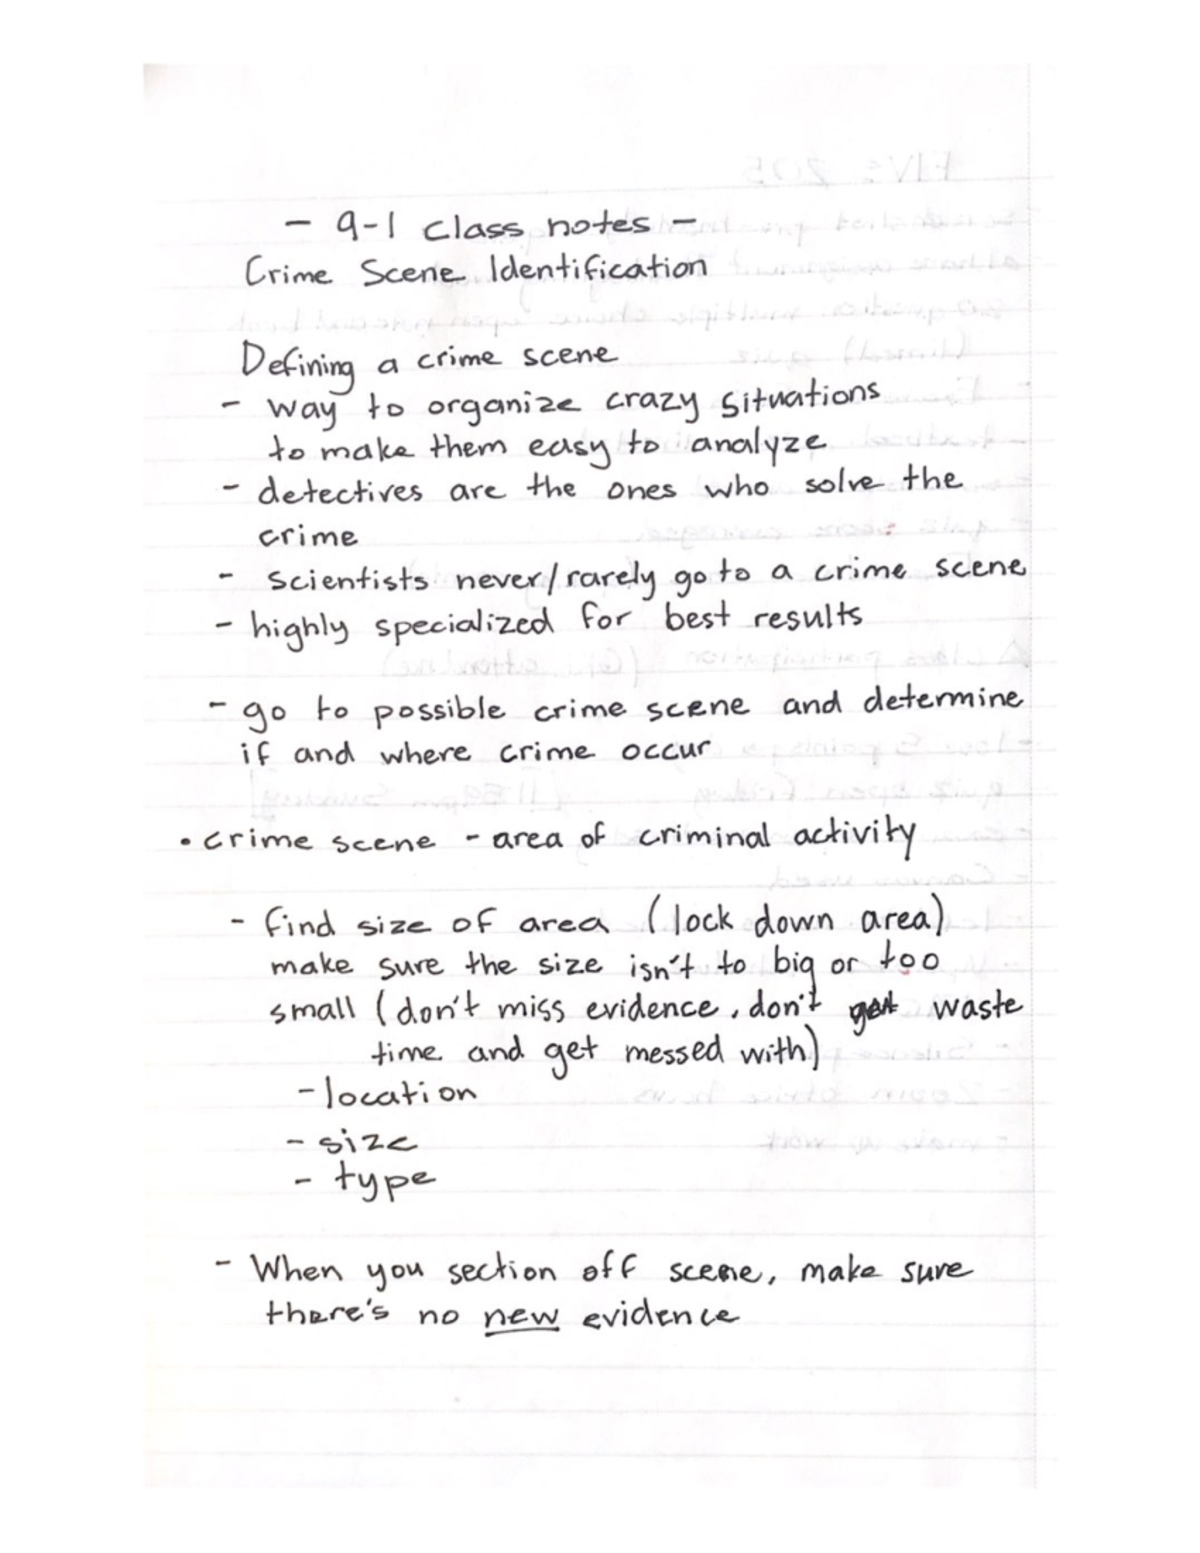 - 9-1 class notes -
Crime Scene Identification
Defining a crime scene
- way to organize crazy situations
to make them easy to analyze
- detectives are the ones who solve the
crime
- scientists never/rarely go to a crime scene
- highly specialized for best results
- go to possible crime scene and determine
if and where crime occur
• crime scene - area of criminal activity
- find size of area (lock down area)
make sure the size isn't to big or too
small (don't miss evidence, don't waste
time and get messed with)
- location
- size
- type
- When you section off scene, make sure
there's no new evidence